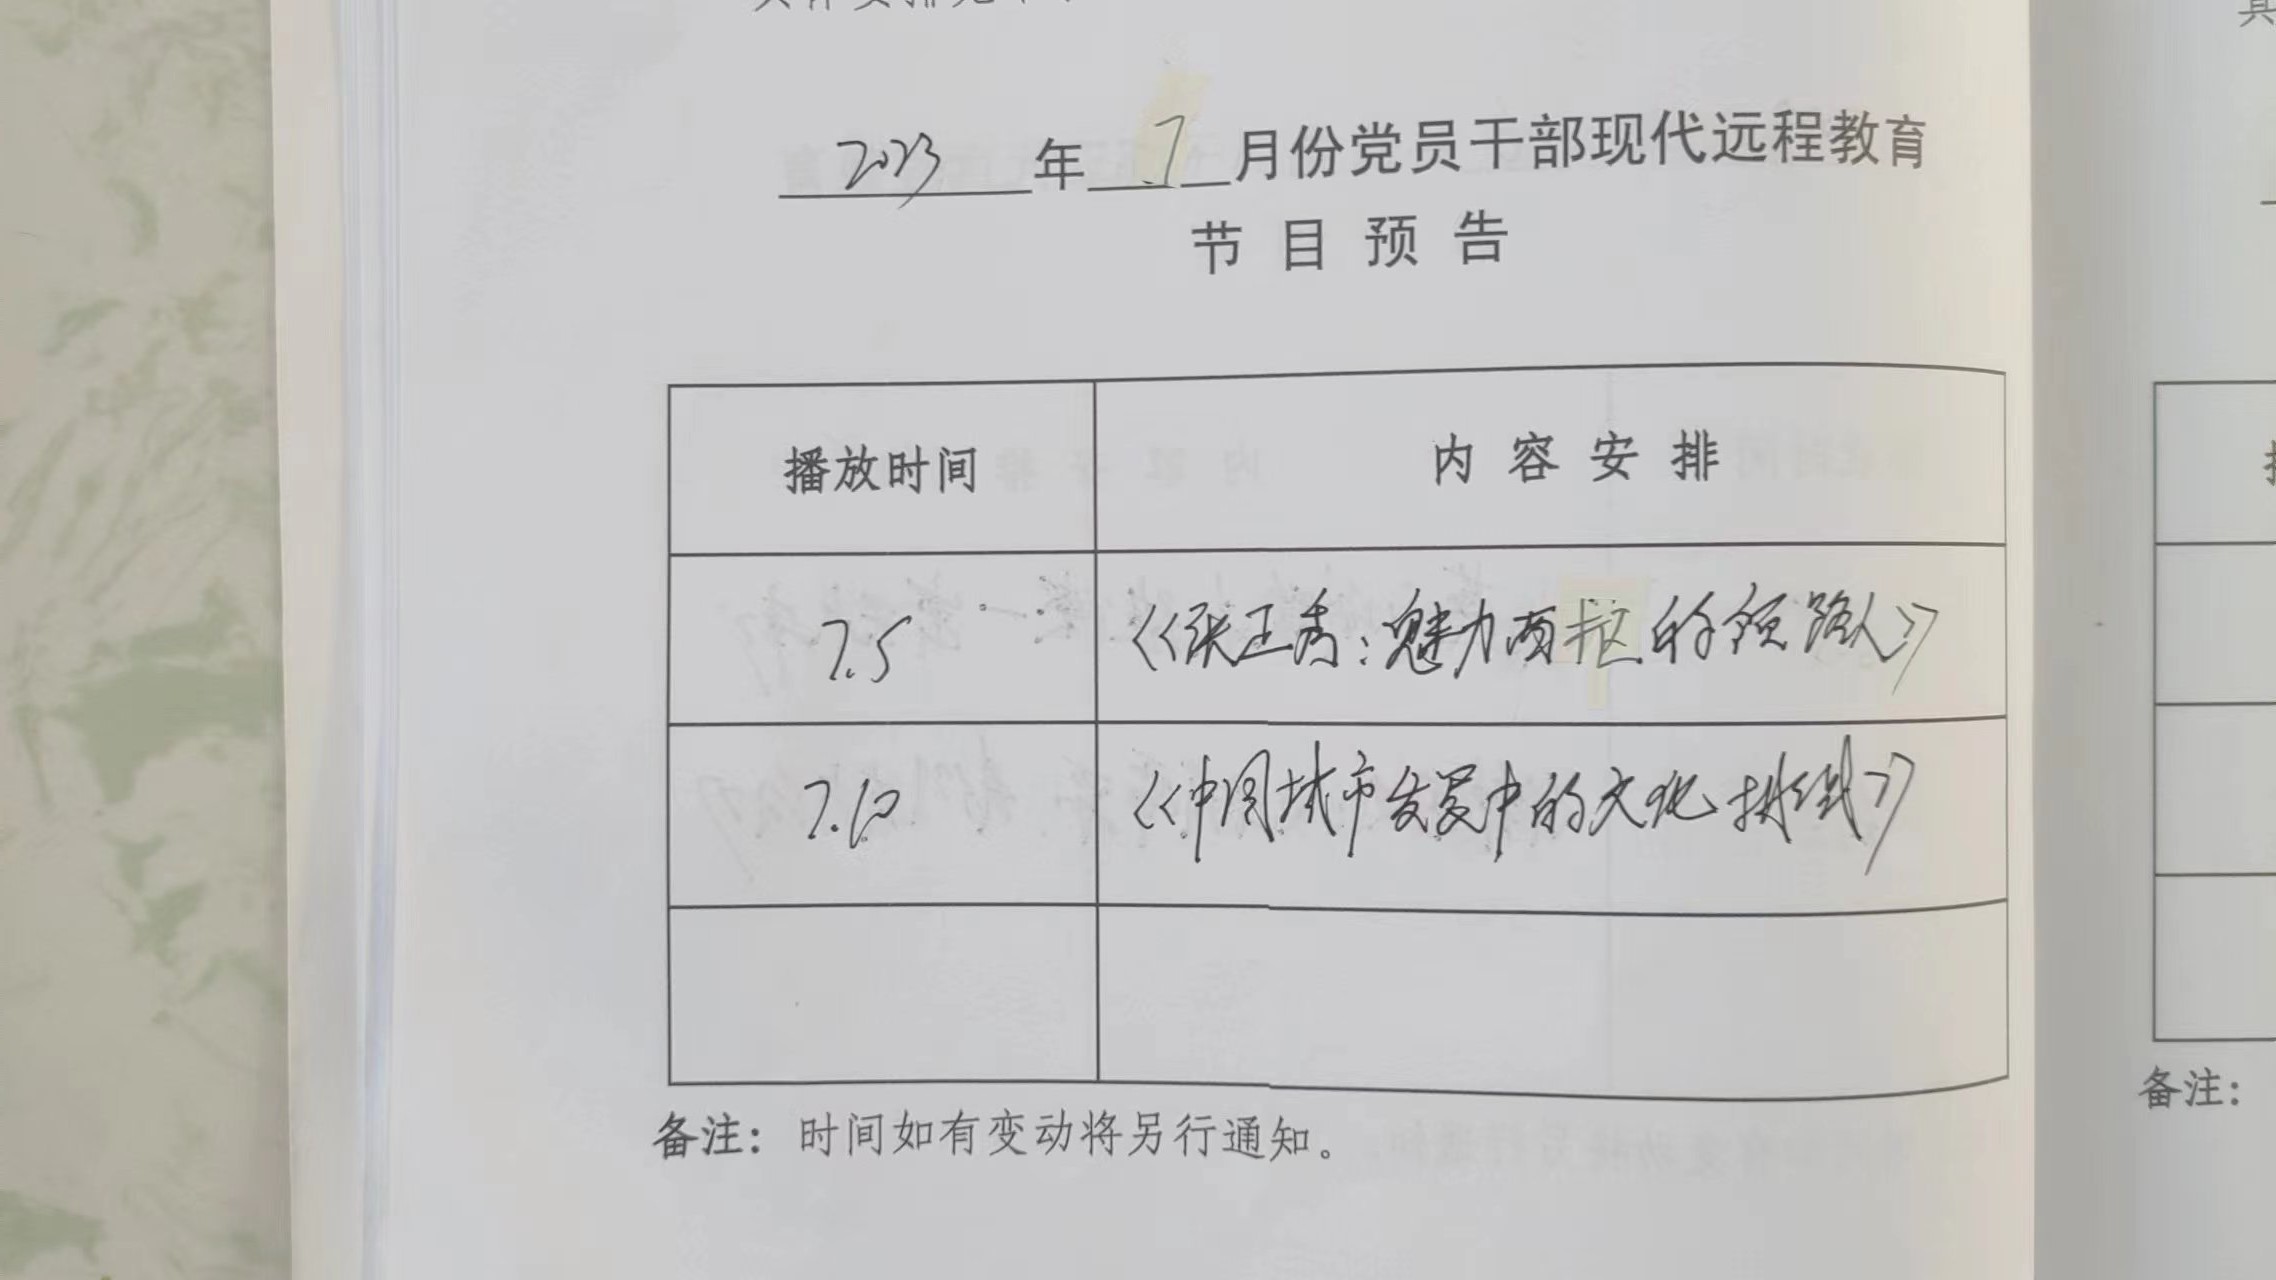 2023年7月份党员干部现代远程教育
节目预告
播放时间 内容安排
7.5 《张正秀:魅力西拒的领路人》
7.10 《中国城市发展中的文化挑战》
备注：时间如有变动将另行通知。
备注：